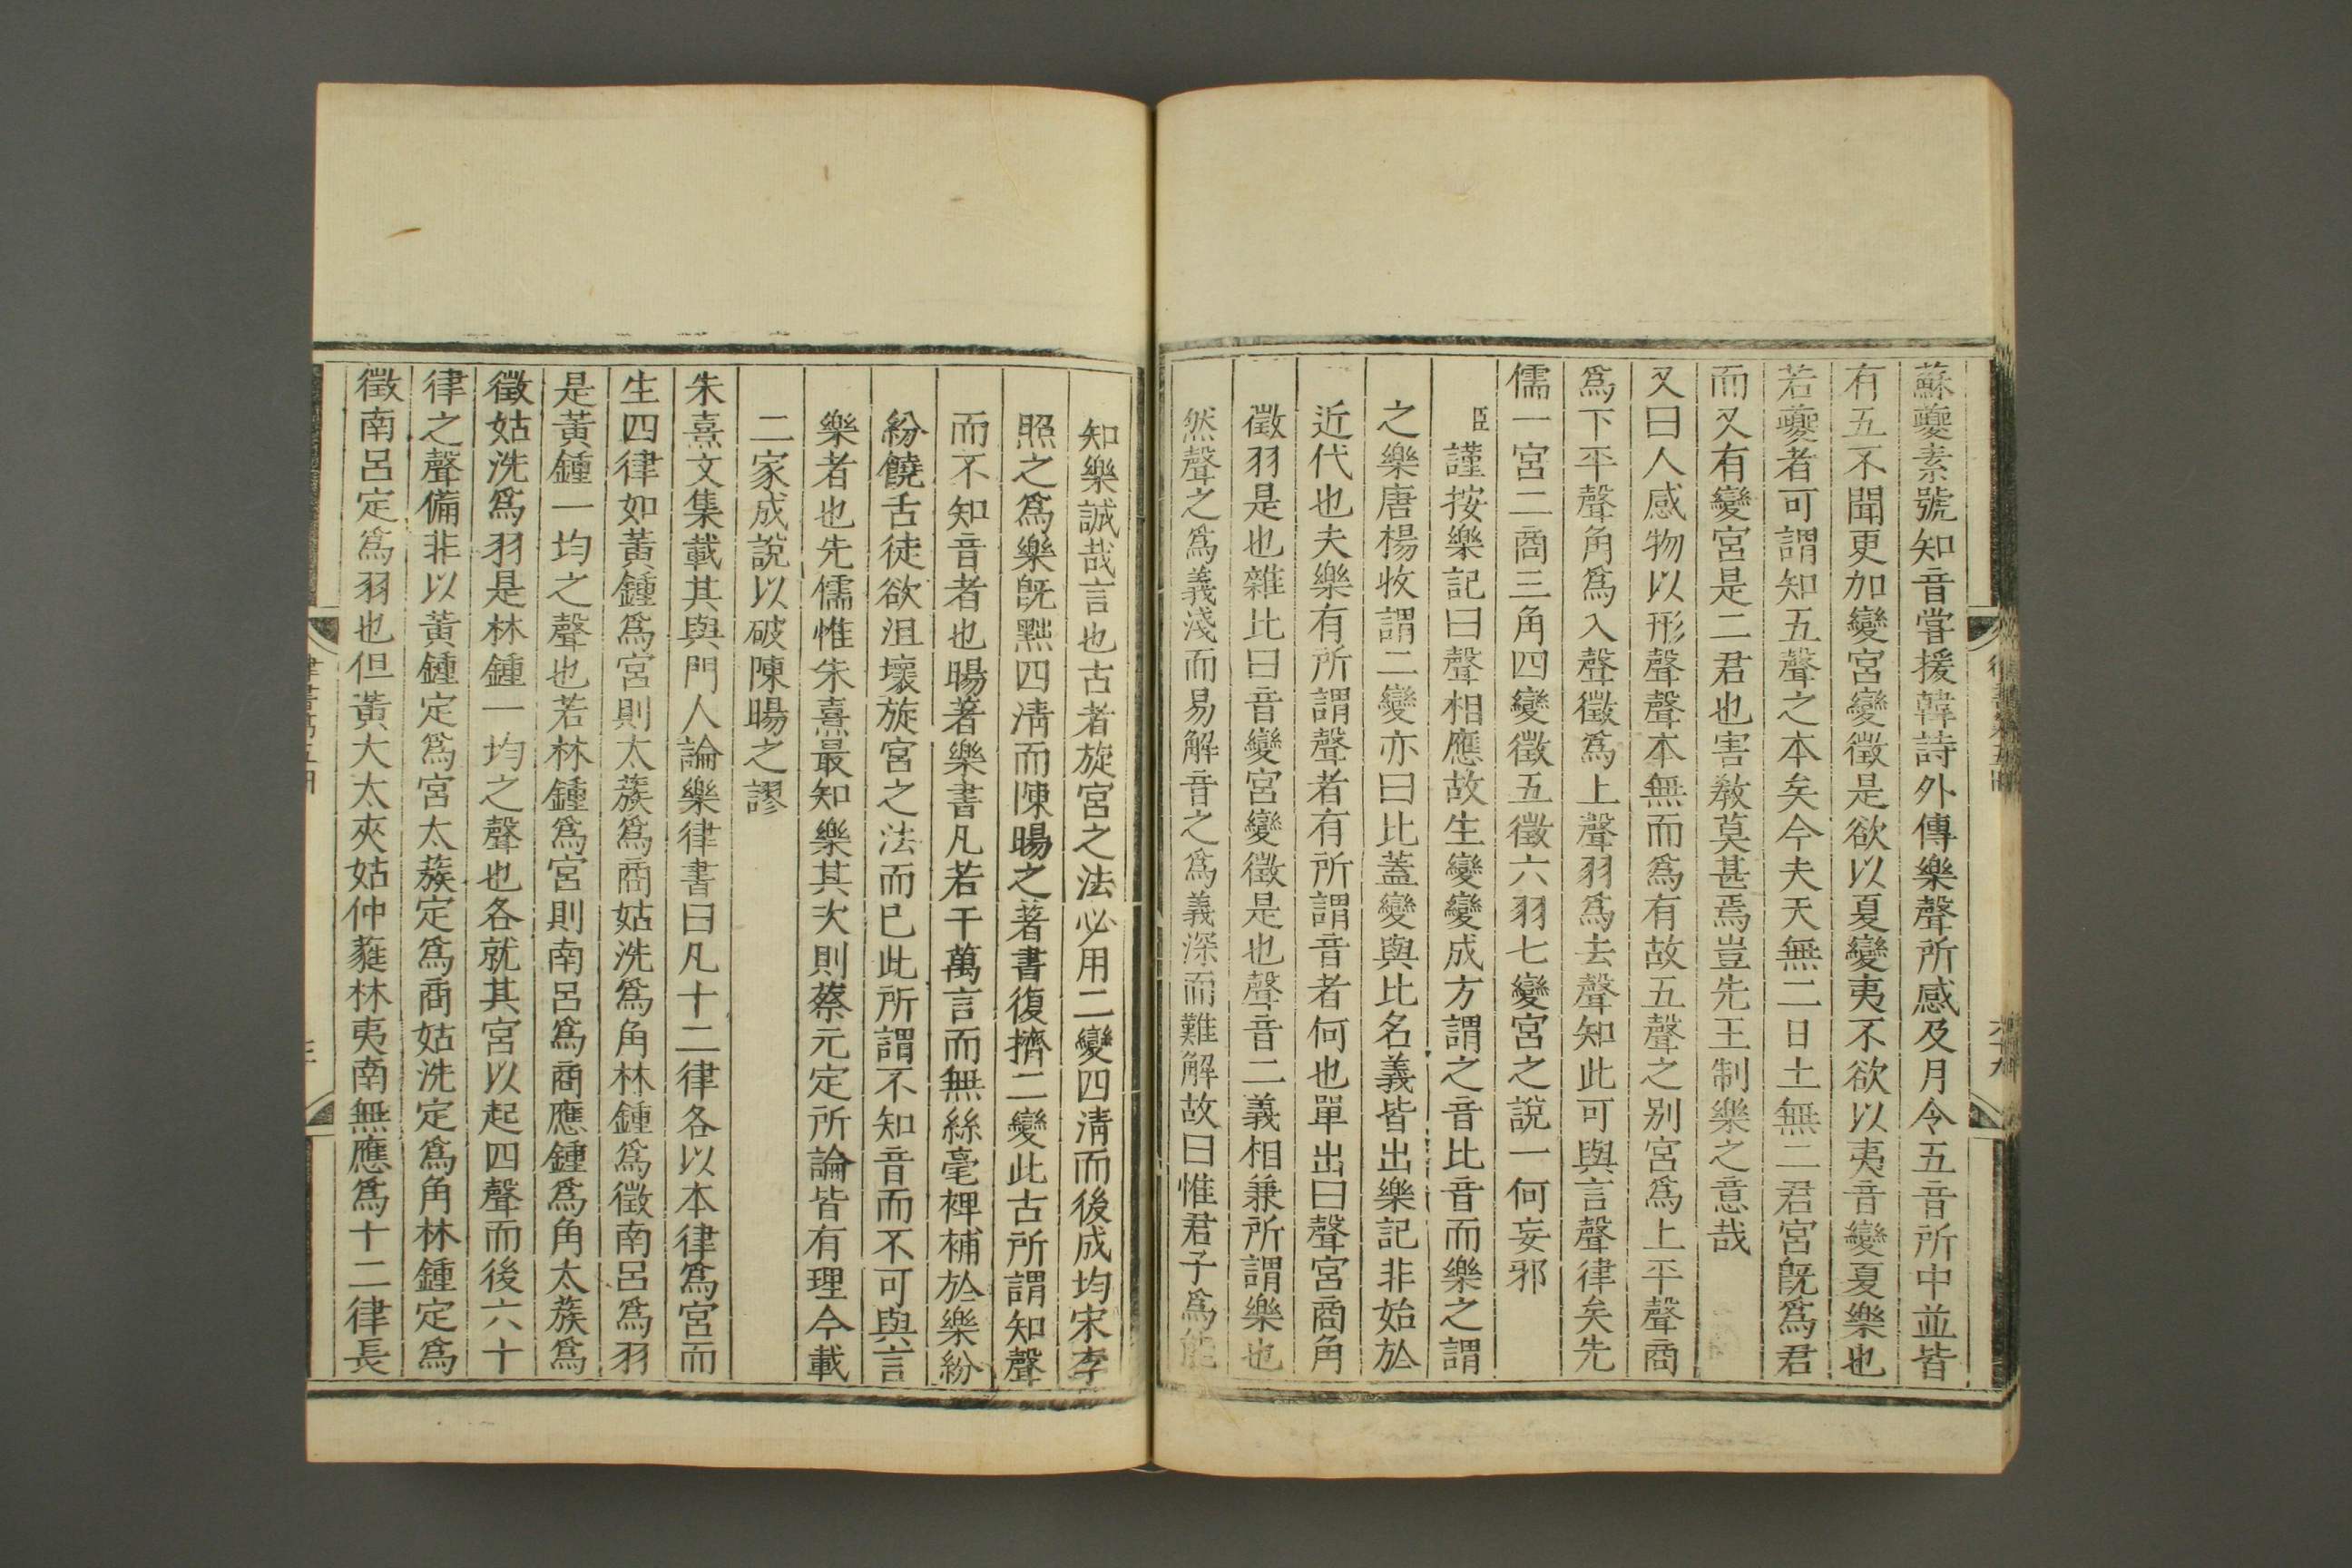 蘇夔素號知音嘗援韓詩外傳樂聲所感及月令五音所中並皆
有五不聞更加變宮變徵是欲以夏變夷不欲以夷音變夏樂也
若夔者可謂知五聲之本矣今夫天無二日土無二君宮旣爲君
而又有變宮是二君也害敎莫甚焉豈先王制樂之意哉
又曰人感物以形聲聲本無而爲有故五聲之別宮爲上平聲商
爲下平聲角爲入聲徵爲上聲羽爲去聲知此可與言聲律矣先
儒一宮二商三角四變徵五徵六羽七變宮之說一何妄邪
臣謹按樂記曰聲相應故生變變成方謂之音比音而樂之謂
之樂唐楊收謂二變亦曰比蓋變與比名義皆出樂記非始於
近代也夫樂有所謂聲者有所謂音者何也單出曰聲宮商角
徵羽是也雜比曰音變宮變徵是也聲音二義相兼所謂樂也
然聲之爲義淺而易解音之爲義深而難解故曰惟君子爲能
知樂誠哉言也古者旋宮之法必用二變四淸而後成均宋李
照之爲樂旣黜四淸而陳暘之著書復擠二變此古所謂知聲
而不知音者也暘著樂書凡若干萬言而無絲毫裨補於樂紛
紛饒舌徒欲沮壞旋宮之法而已此所謂不知音而不可與言
樂者也先儒惟朱熹最知樂其次則蔡元定所論皆有理今載
二家成說以破陳暘之謬
朱熹文集載其與門人論樂律書曰凡十二律各以本律爲宮而
生四律如黃鍾爲宮則太蔟爲商姑洗爲角林鍾爲徵南呂爲羽
是黃鍾一均之聲也若林鍾爲宮則南呂爲商應鍾爲角太蔟爲
徵姑洗爲羽是林鍾一均之聲也各就其宮以起四聲而後六十
律之聲備非以黃鍾定爲宮太蔟定爲商姑洗定爲角林鍾定爲
徵南呂定爲羽也但黃大太夾姑仲蕤林夷南無應爲十二律長